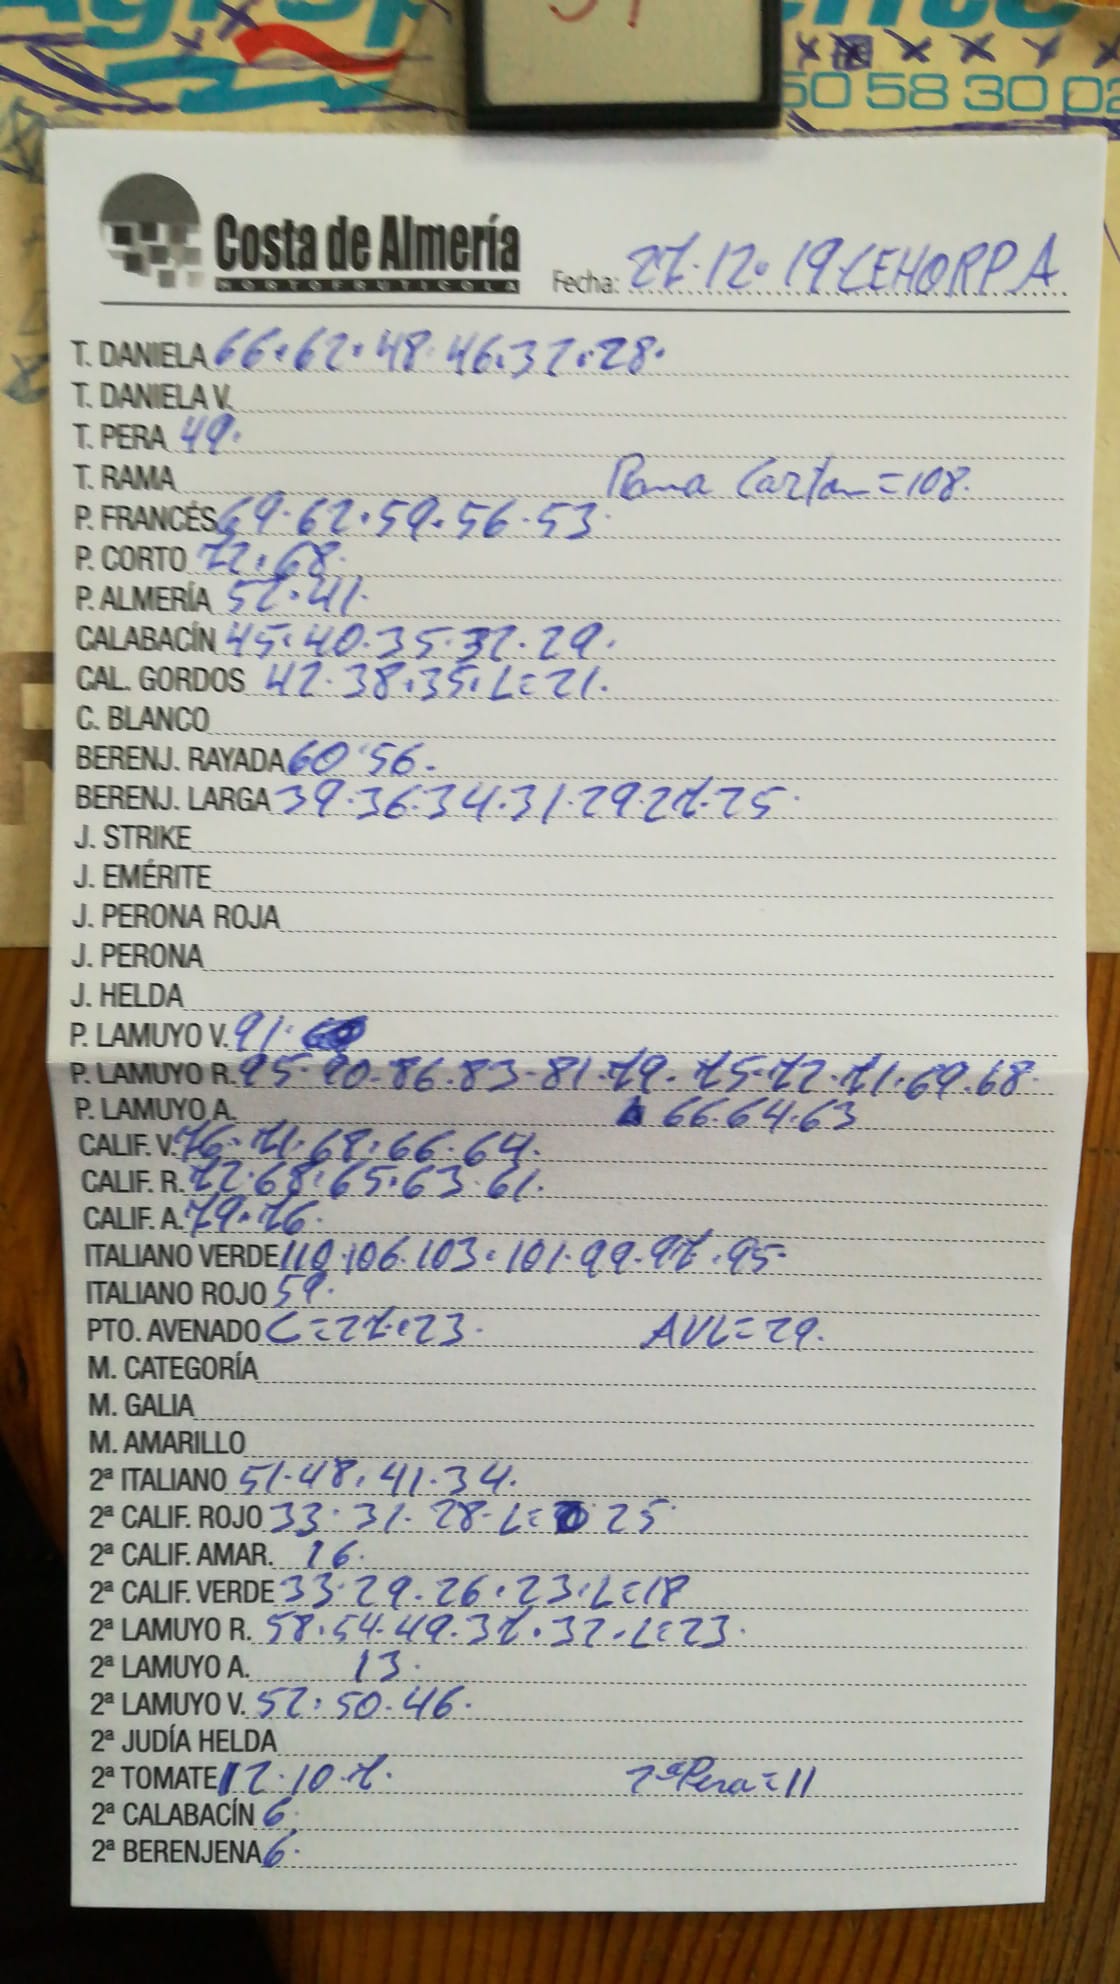 50 58 30 pa
Costa de Almería
HORTOFRUTICOLA
Fecha: 27·12·19 CEHORPA
T. DANIELA 66·62·48·46·32·28·
T. DANIELA V.
T. PERA 49·
T. RAMA Rama Carton=108·
P. FRANCÉS 69·62·59·56·53·
P. CORTO 72·68·
P. ALMERÍA 52·41·
CALABACÍN 45·40·35·32·29·
CAL. GORDOS 42·38·35·L=21·
C. BLANCO
BERENJ. RAYADA 60·56·
BERENJ. LARGA 39·36·34·31·29·27·25·
J. STRIKE
J. EMÉRITE
J. PERONA ROJA
J. PERONA
J. HELDA
P. LAMUYO V. 91·
P. LAMUYO R. 95·90·86·83·81·79·75·72·71·69·68·
P. LAMUYO A. 66·64·63
CALIF. V. 76·71·68·66·64·
CALIF. R. 72·68·65·63·61·
CALIF. A. 79·76·
ITALIANO VERDE 110·106·103·101·99·97·95·
ITALIANO ROJO 59·
PTO. AVENADO C=27·23· AVL=29·
M. CATEGORÍA
M. GALIA
M. AMARILLO
2ª ITALIANO 51·48·41·34·
2ª CALIF. ROJO 33·31·28·L= 25·
2ª CALIF. AMAR. 16·
2ª CALIF. VERDE 33·29·26·23·L=18
2ª LAMUYO R. 58·54·49·37·32·L=23·
2ª LAMUYO A. 13·
2ª LAMUYO V. 52·50·46·
2ª JUDÍA HELDA
2ª TOMATE 12·10·7· 2ªPera=11
2ª CALABACÍN 6·
2ª BERENJENA 6·